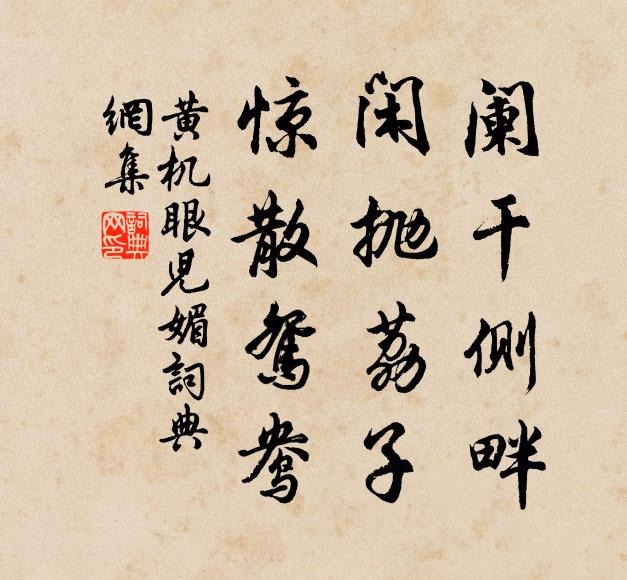 阑干侧畔
闲抛荔子
惊散鸳鸯
黄机眼儿媚詞典
網集
詞典
网印